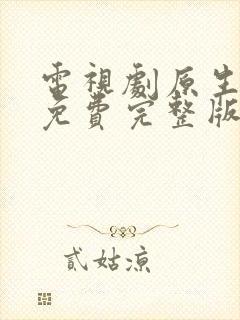 電視劇原生
免費完整版
貳姑凉